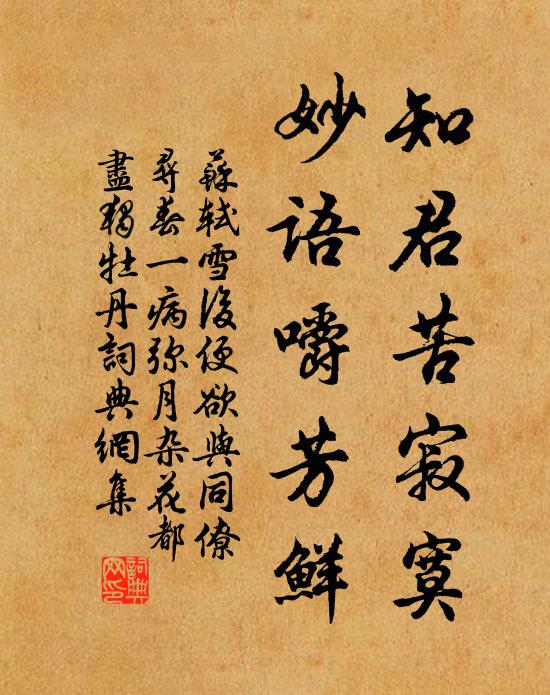 知君苦寂寞
妙语嚼芳鮮
蘇軾雪後便欲與同僚
尋春一病弥月杂花都
盡獨牡丹詞典網集
詞典
网印